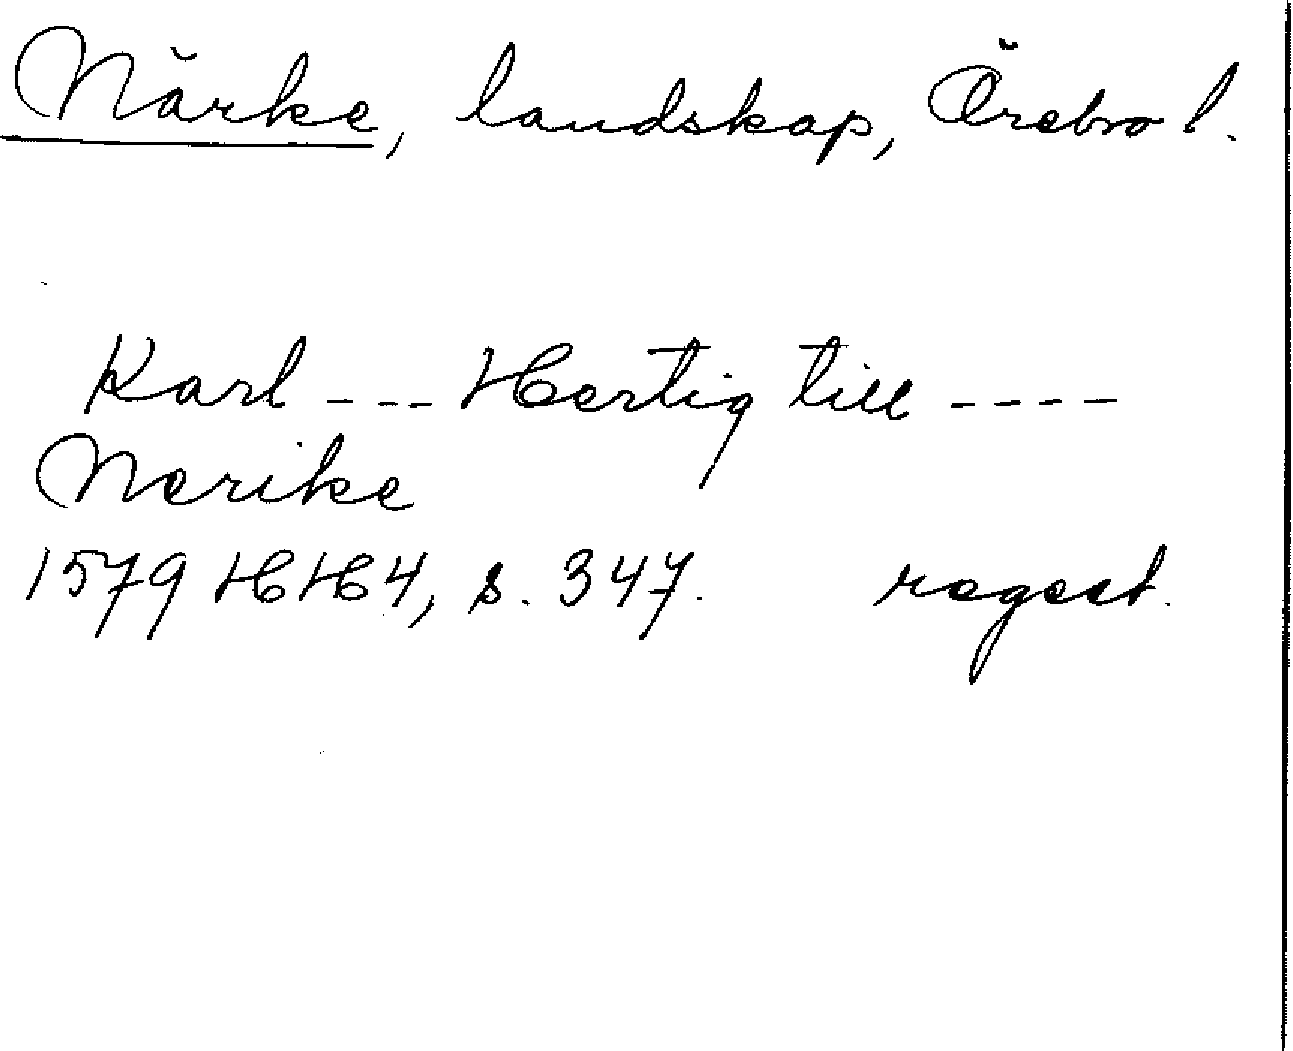 Närke, landskap, Örebro l.
Karl --- Hertig till ----
Nerike
1579 HH4, s. 347. regest.